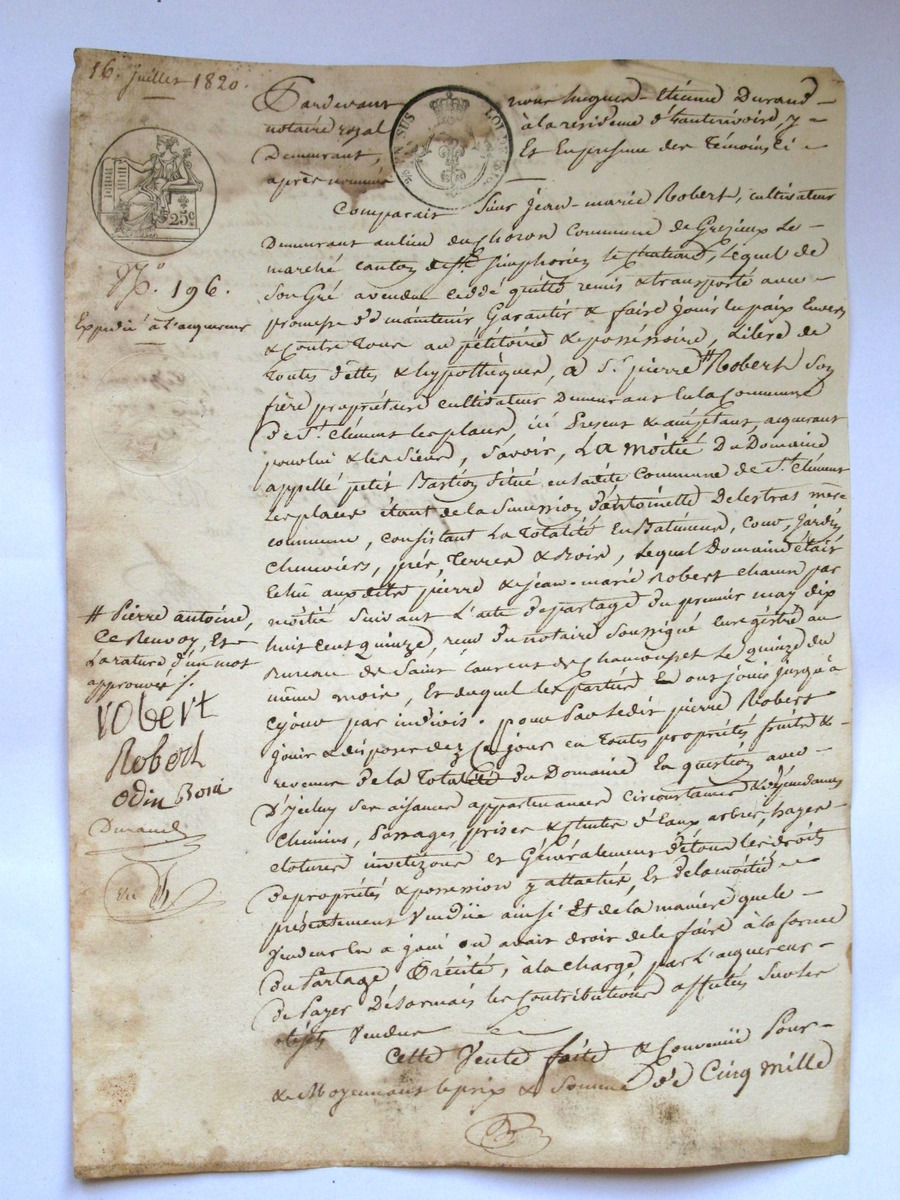 16. juillet 1820.
Pardevant nous hugues-Etienne Durand
notaire royal à la residence d'hauterivoire, y
Demeurant, Et En presence des Témoins ci
après nommés
Comparait Sieur Jean-marie Robert, cultivateur
Demeurant au lieu du Choron Commune de Grezieux Le
marché canton de St. Simphorien le chateau, Lequel de
Son Gré a vendu ceddé quitté remis & transporté avec
promesse d'd maintenir Garantir & faire jouir En paix Envers
& Contre Tous au pétitoire & possessoire, Libre de
toutes dettes & hypothèques, a Sr. pierre # Robert Son
frère propriétaire cultivateur Demeurant En la Commune
De St. Clément les places ici Présent & acceptant acquerant
pour lui & les Siens, Savoir, La moitié Du Domaine
appellé petit Bastion Situé en la dite Commune de St. Clément
Les places étant de la Succession d'antoinette Delestras mère
commune, consistant La Totalité En Batimens, Cour, Jardin
Cheneviers, prés, Terres & Bois, Lequel Domaine était
Echu aux dits pierre & jean-marie Robert chacun par
moitié Suivant L'acte de partage Du premier may dix
huit cent quinze, reçu Du notaire Soussigné Enregistré au
Bureau de Saint Laurent de Chamousset Le quinze du
même mois, Et duquel les parties Ont joui jusqu'à
Cejour par indivis. pour Par Ledit pierre Robert
jouir & disposer dez Ce jour en Toutes propriétés fruits &
revenus De la Totalité du Domaine En question avec
D'ycelui Ses aisances appartenances Circonstances & dépendances
Chemins, Passages, prises & chutes d'Eaux arbres, hayes
clotures Et Généralement de tous les droits
De propriétés & possession y attachés, Et de la moitié
présentement Vendüe ainsi Et de la manière que le
Vendeur En a joui ou avait droit de le faire à la forme
Du Partage Précité, à la charge par L'acquereur
De Payer Désormais les Contributions affectés Sur les
objets Vendus
Cette Vente faite & Convenüe Pour
& Moyennant le prix & Somme De Cinq mille
25c
N°. 196.
Expédié à l'acquereur
# Pierre antoine,
Ce Renvoy, Et
La rature d'un mot
approuvés
robert
Robert
odin Boni
Durand